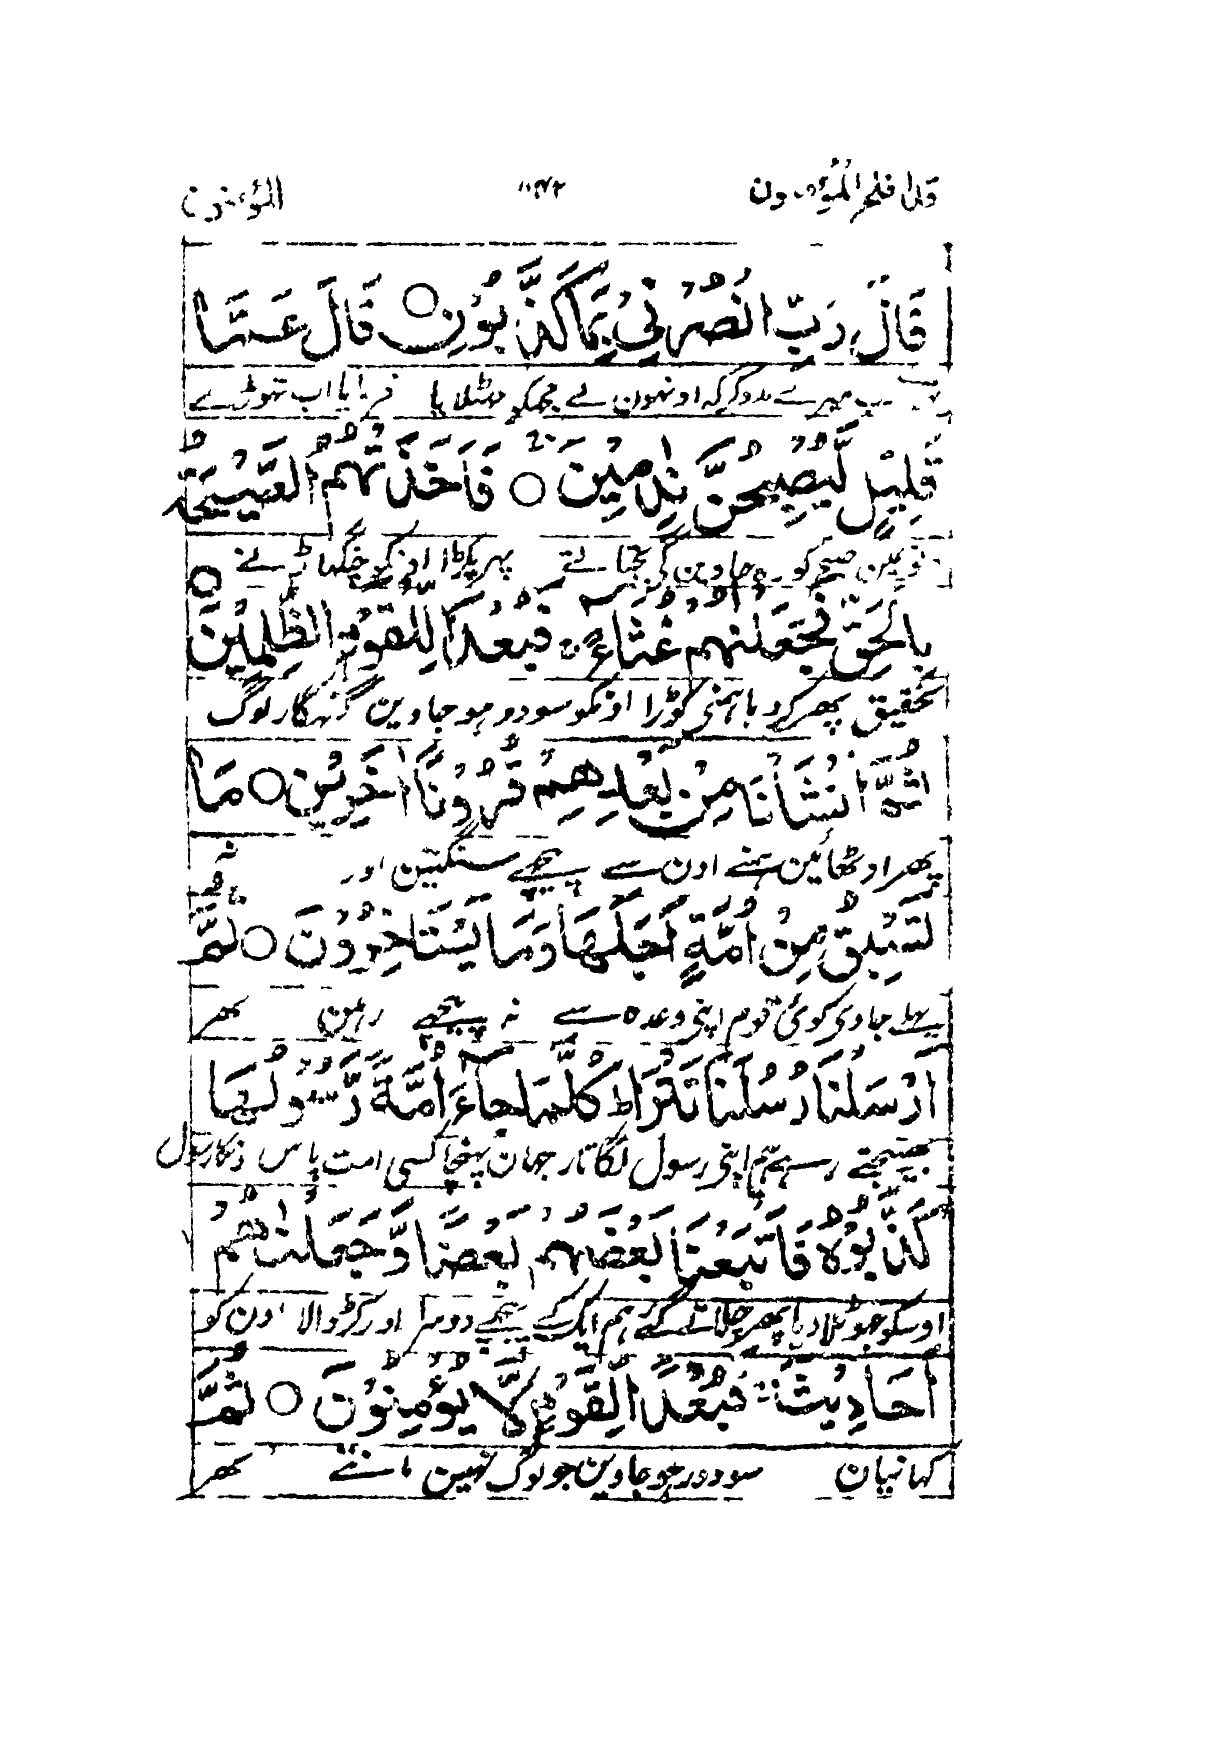 قد افلح المؤمنون ۱۱۴۲ المؤمنون
قَالَ رَبِّ انْصُرْنِيْ بِمَا كَذَّبُوْنِ ○ قَالَ عَمَّا
رب میرے مدد کر کہ اونہون نے مجھکو جھٹلایا فرمایا اب تھوڑے
قَلِيْلٍ لَّيُصْبِحُنَّ نٰدِمِيْنَ ○ فَاَخَذَتْهُمُ الصَّيْحَةُ
دنون مین صبح کو رہ جاوین گی پچتاتے پہر پکڑا اونکو چنگھاڑ نے
بِالْحَقِّ فَجَعَلْنٰهُمْ غُثَآءً ۚ فَبُعْدًا لِّلْقَوْمِ الظّٰلِمِيْنَ ○
تحقیق پھر کردیا ہمنی کوڑا اونکو سو دور ہو جاوین گنہگار لوگ
ثُمَّ اَنْشَاْنَا مِنْۢ بَعْدِهِمْ قُرُوْنًا اٰخَرِيْنَ ○ مَا
پھر اوٹھائین ہمنے اون سے پیچھے سنگتین اور نہ
تَسْبِقُ مِنْ اُمَّةٍ اَجَلَهَا وَمَا يَسْتَاْخِرُوْنَ ○ ثُمَّ
پہلے جاوی کوئی قوم اپنی وعدہ سے نہ پیچھے رہین پھر
اَرْسَلْنَا رُسُلَنَا تَتْرَا ط كُلَّمَا جَآءَ اُمَّةً رَّسُوْلُهَا
بھیجتے رہے ہم اپنی رسول لگاتار جہان پہنچا کسی امت پاس اونکا رسول
كَذَّبُوْهُ فَاَتْبَعْنَا بَعْضَهُمْ بَعْضًا وَّجَعَلْنٰهُمْ
اوسکو جھوٹلا دیا پھر چلاتے گئے ہم ایک کے پیچھے دوسرا اور کر ڈالا اون کو
اَحَادِيْثَ ۚ فَبُعْدًا لِّقَوْمٍ لَّا يُؤْمِنُوْنَ ○ ثُمَّ
کہانیان سو دور ہو جاوین جو لوگ نہین مانتے پھر